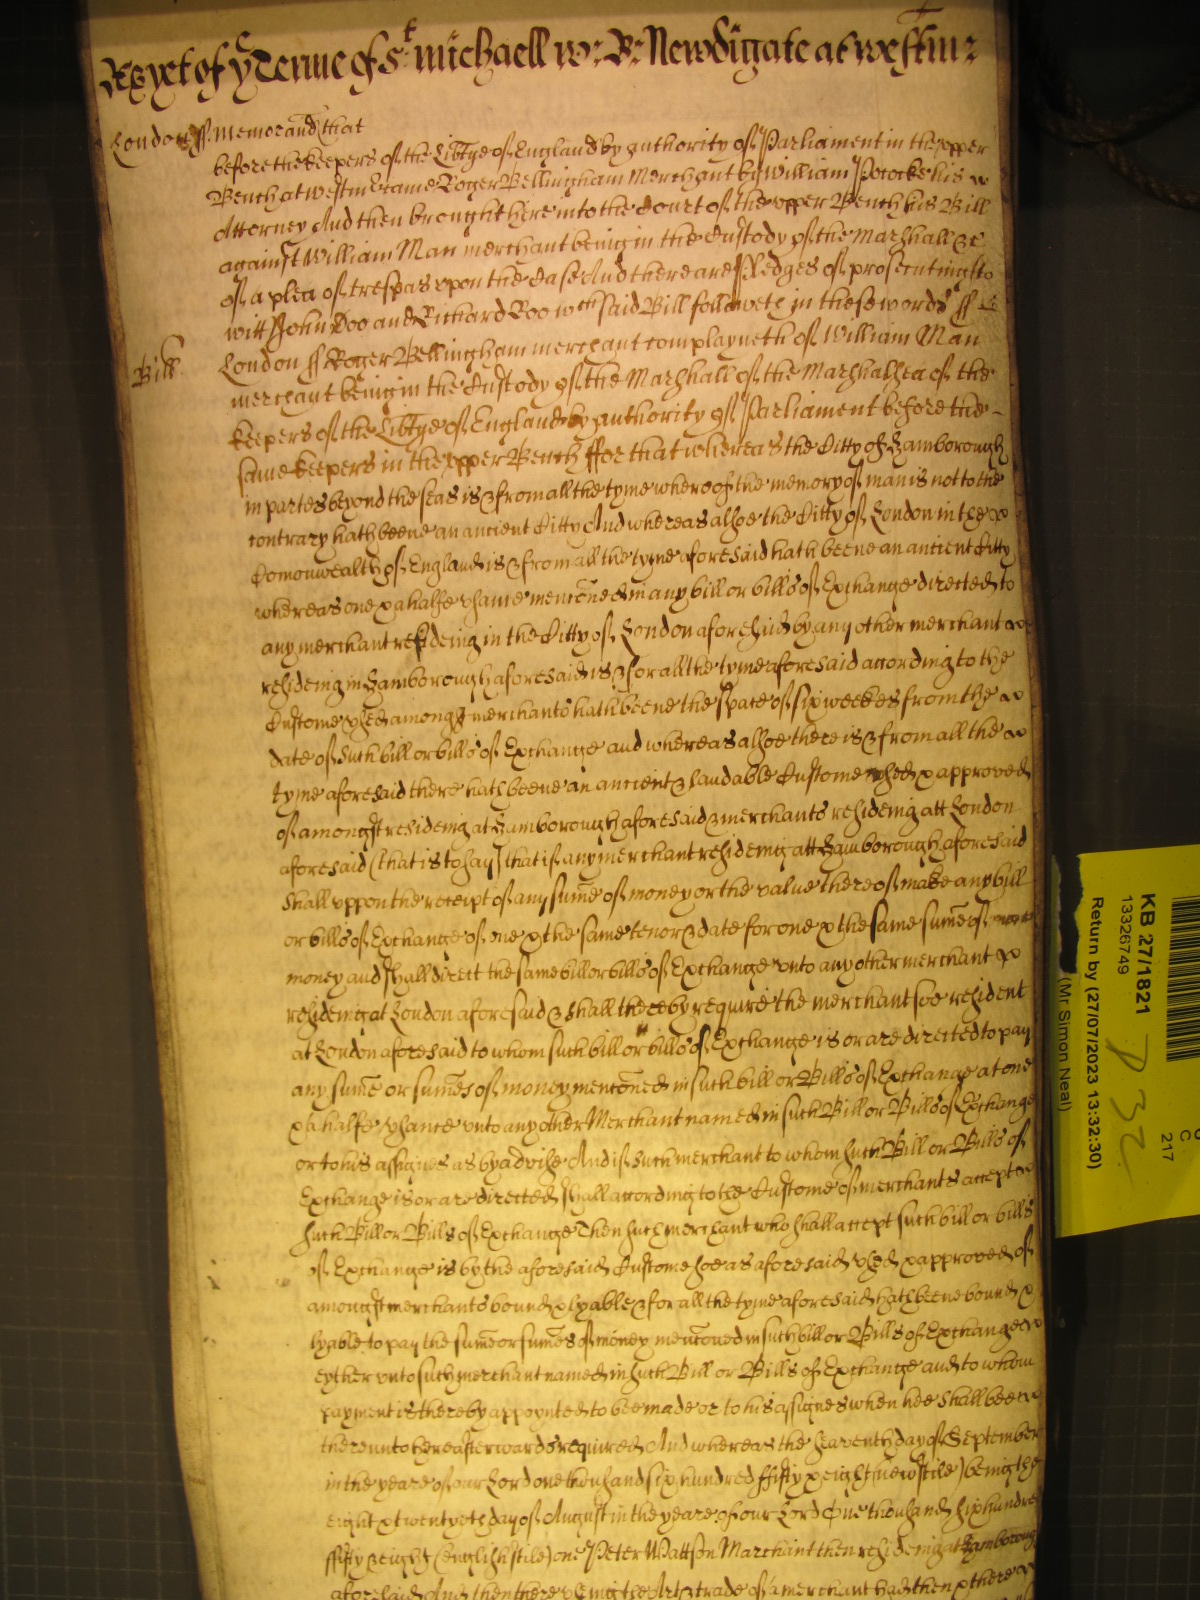 yet of ye Terme of St Michaell Newdigate at Westm:
London ss Memorand that
before the keepers of the Libtye of England by authority of Parliament in the vpper
Bench at Westm Came Roger Bellingham Merchant by William Pococke his
Attorney And then brought here into the Court of the vpper Bench his Bill
against William Man merchant being in the Custody of the Marshall &c
of a plea of trespas vpon the Case And there are Pledges of prosecuting to
witt John Doo and Richard Roo wch said Bill followeth in these words ss
Bill London ss Roger Bellingham merchant complayneth of William Man
merchant being in the Custody of the Marshall of the Marshalsea of the
keepers of the Libtye of England by authority of Parliament before the
same keepers in the vpper Bench ffor that whereas the Citty of Hamborough
in partes beyond the seas is & from all the tyme whereof the memory of man is not to the
contrary hath beene an ancient Citty And whereas alsoe the Citty of London in the
Comonwealth of England is & from all the tyme aforesaid hath beene an ancient Citty
whereas one & a halfe vsance menconed in any bill or bills of Exchange directed to
any merchant resideing in the Citty of London aforesaid by any other merchant
resideing in Hamborough aforesaid is & for all the tyme aforesaid according to the
Custome vsed amongst merchants hath beene the space of six weekes from the
date of such bill or bills of Exchange and whereas alsoe there is & from all the
tyme aforesaid there hath beene an ancient & laudable Custome vsed & approved
of amongst resideing at Hamborough aforesaid & merchants resideing att London
aforesaid (that is to say) that if any merchant resideing att Hamborough aforesaid
shall vppon the receipt of any sume of money or the value thereof make any bill
or bills of Exchange of one & the same tenor & date for one & the same sume of
money and shall direct the same bill or bills of Exchange vnto any other merchant
resideing at London aforesaid & shall thereby require the merchant soe resident
at London aforesaid to whom such bill or bills of Exchange is or are directed to pay
any sume or sumes of money menconed in such bill or Bills of Exchange at one
& a halfe vsance vnto any other Merchant named in such Bill or Bills of Exchange
or to his assignes as by advise And if such merchant to whom such Bill or Bills of
Exchange is or are directed shall according to the Custome of merchants accept
such Bill or Bills of Exchange Then such merchant who shall accept such bill or bills
of Exchange is by the aforesaid Custome soe as aforesaid vsed & approved of
amongst merchants bound & lyable & for all the tyme aforesaid hath beene bound &
lyable to pay the sume or sumes of money menconed in such bill or Bills of Exchange
eyther vnto such merchant named in such Bill or Bills of Exchange and to whom
payment is thereby appoynted to bee made or to his assignes when hee shall bee
thereunto hereafterwards required And whereas the seaventh day of September
in the yeare of our Lord one thousand six hundred ffifty & eight (new stile) being the
eight & twentyeth day of August in the yeare of our Lord One thousand six hundred
ffifty & eight (english stile) one Peter Wattson Marchant then resideing at Hamborough
aforesaid And then there vseing the Art & trade of a merchant had then & there
KB 27/1821
13326749
Return by (27/07/2023 13:32:30)
(Mr Simon Neal)
217